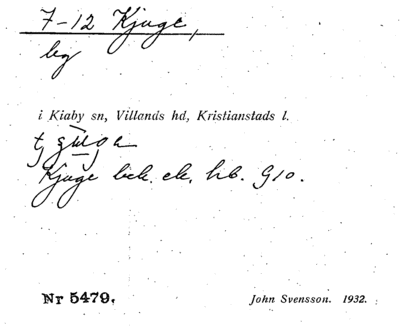 7-12 Kjuge,
by
i Kiaby sn, Villands hd, Kristianstads l.
Kjuge bek. ek. hb. G10.
Nr 5479. John Svensson. 1932.